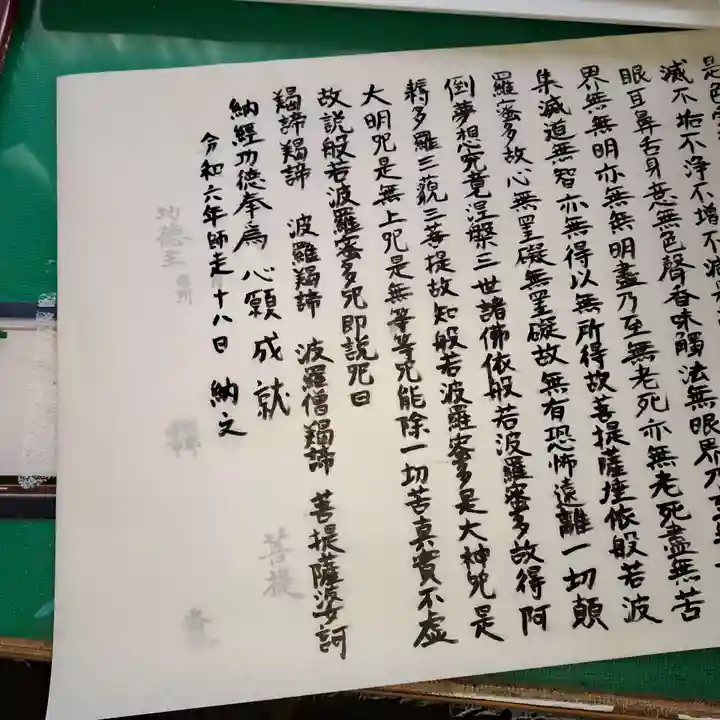 是色空
滅不垢不浄不増不減
眼耳鼻舌身意無色聲香味觸法無眼界乃至無
界無無明亦無無明盡乃至無老死亦無老死盡無苦
集滅道無智亦無得以無所得故菩提薩埵依般若波
羅蜜多故心無罣礙無罣礙故無有恐怖遠離一切顛
倒夢想究竟涅槃三世諸佛依般若波羅蜜多故得阿
耨多羅三藐三菩提故知般若波羅蜜多是大神咒是
大明咒是無上咒是無等等咒能除一切苦真實不虚
故説般若波羅蜜多咒即説咒曰
羯諦羯諦 波羅羯諦 波羅僧羯諦 菩提薩婆訶
納経功徳奉為心願成就
令和六年師走十八日 納文
功徳主
菩提